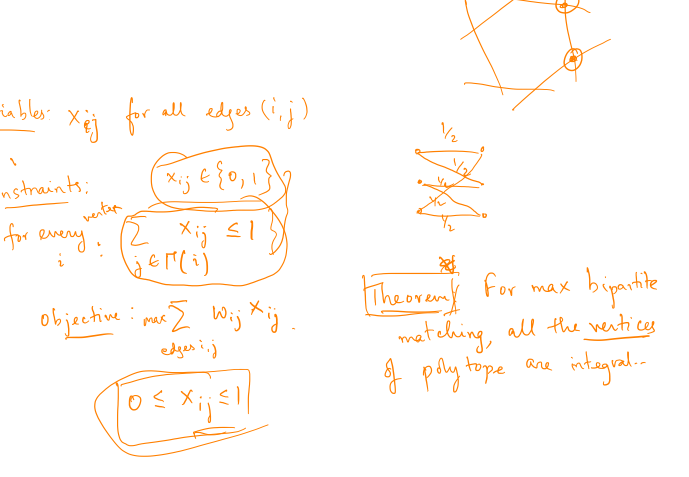 iables: xij for all edges (i,j)
nstraints:
xij ∈ {0,1}
for every vertex i :
∑ xij ≤ 1
j ∈ Γ(i)
Objective : max ∑ wij xij .
edges i,j
0 ≤ xij ≤ 1
1/2
1/2
1/2
1/2
1/2
Theorem For max bipartite
matching, all the vertices
of polytope are integral..